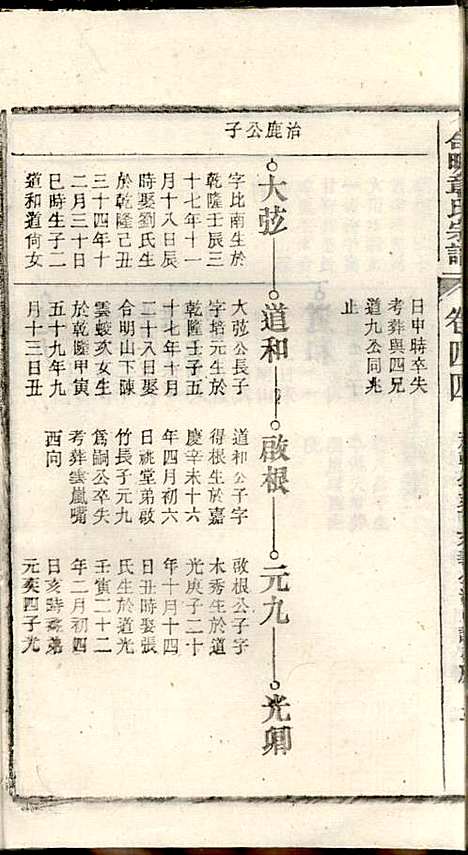 治鹿公子
日申時卒失
考葬與四兄
道九公同兆
止
大弦
道和
啟根
元九
光卿
字比南生於
乾隆壬辰三
十七年十一
月十八日辰
時娶劉氏生
於乾隆己丑
三十四年十
二月三十日
巳時生子二
道和道尙女
大弦公長子
字培元生於
乾隆壬子五
十七年十月
二十八日娶
合明山下陳
雲蛟次女生
於乾隆甲寅
五十九年九
月十三日丑
道和公子字
得根生於嘉
慶辛未十六
年四月初六
日祧堂弟啟
竹長子元九
爲嗣公卒失
考葬雲嵐嘴
西向
啟根公子字
木秀生於道
光庚子二十
年十月十四
日丑時娶張
氏生於道光
壬寅二十二
年二月初四
日亥時葬弟
元奕四子光
合明章氏宗譜
卷四四